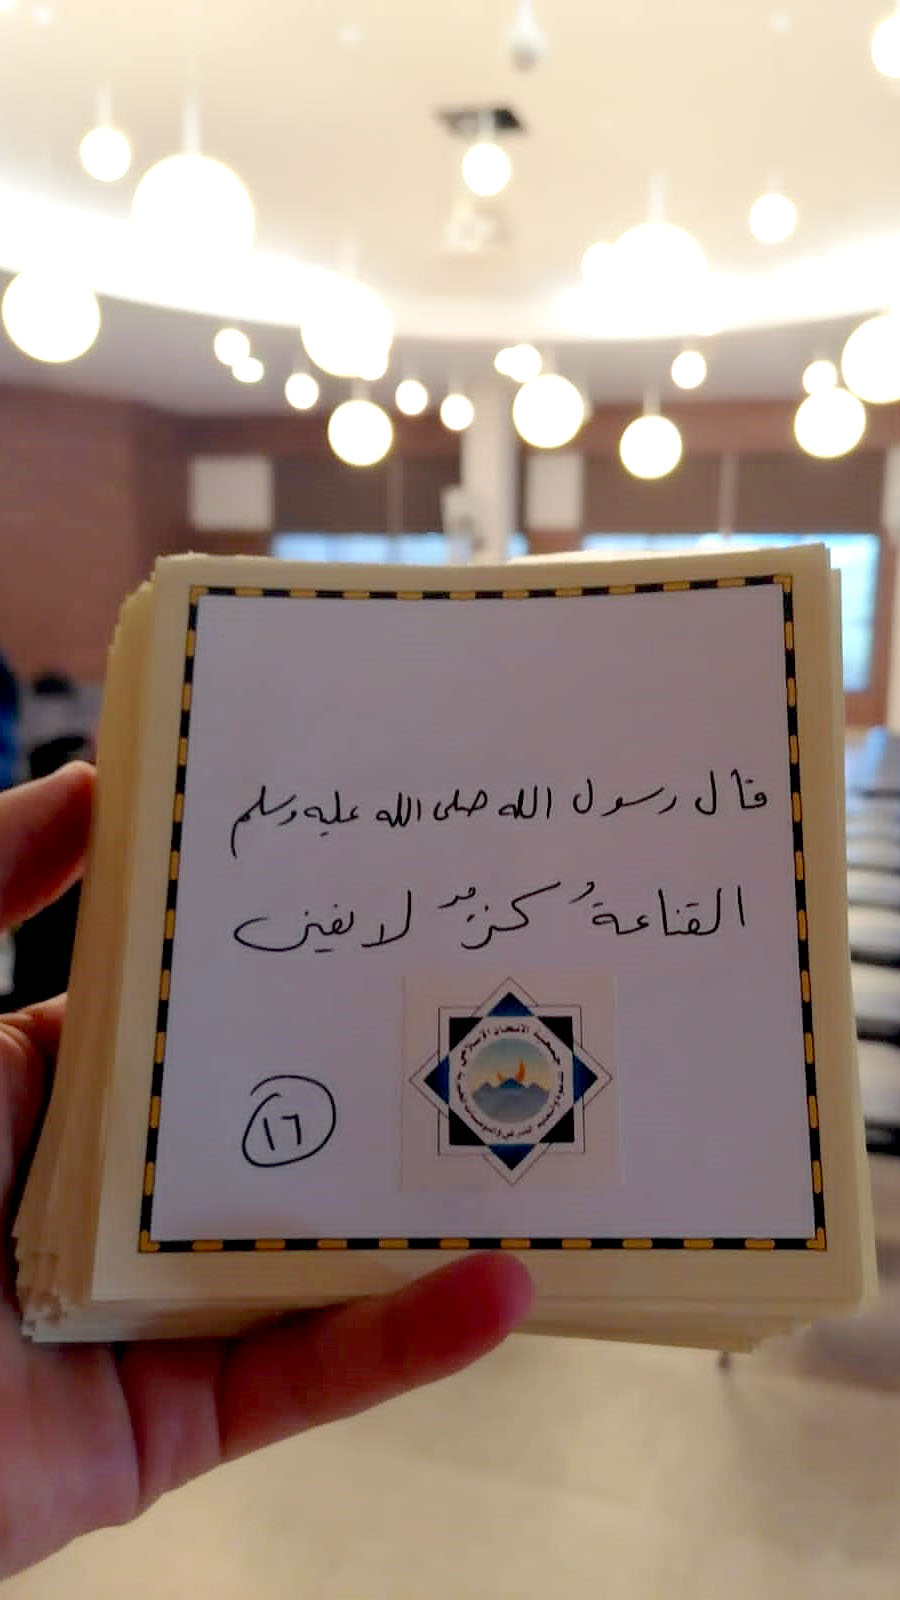 قال رسول الله صلى الله عليه وسلم
القناعةُ كنزٌ لا يفنى
١٦